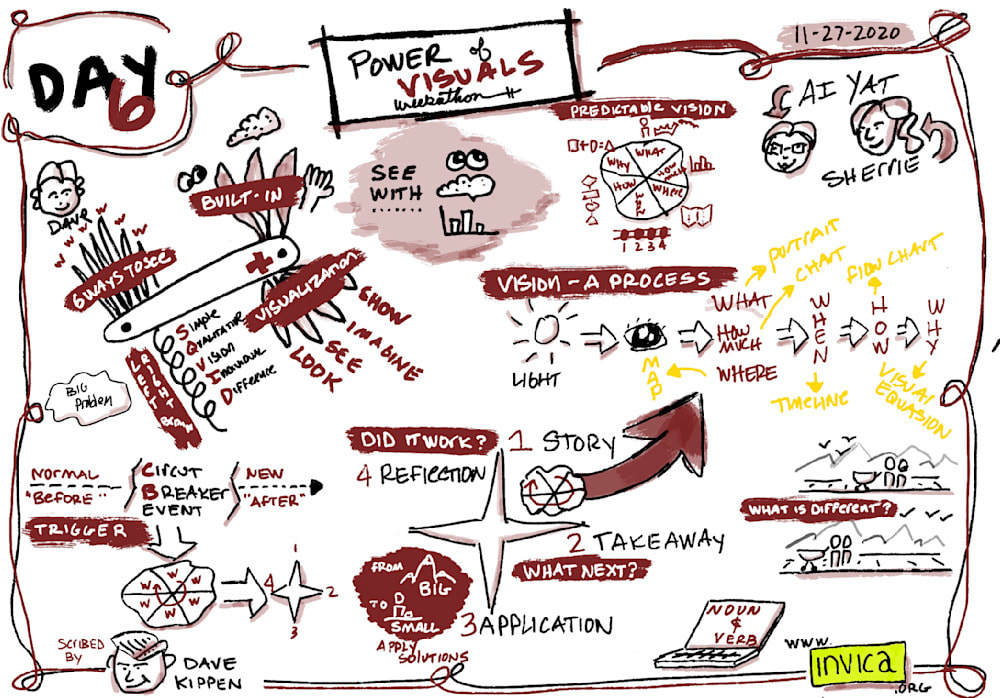 DAY
6
POWER of
VISUALS
Weekathon
11-27-2020
AI YAT
SHERRIE
PREDICTABLE VISION
□+O=△
WHAT
HOW MUCH
WHERE
WHEN
HOW
WHY
1 2 3 4
SEE
WITH
DAVE
W W W W W W
BUILT-IN
6 WAYS TO SEE
VISUALIZATION
SHOW
IMAGINE
SEE
LOOK
SIMPLE
QUALITATIVE
VISION
INDIVIDUAL
DIFFERENCE
LEFT
RIGHT
BRAIN
BIG
Problem
VISION - A PROCESS
PORTRAIT
CHART
FLOW CHART
LIGHT
MAP
WHAT
HOW
MUCH
WHERE
WHEN
HOW
WHY
TIMELINE
VISUAL
EQUASION
NORMAL
"BEFORE"
CIRCUT
BREAKER
EVENT
NEW
"AFTER"
TRIGGER
W W W W W W
1
2
3
4
DID IT WORK?
4 REFLECTION
1 STORY
2 TAKEAWAY
WHAT NEXT?
3 APPLICATION
FROM
BIG
TO
SMALL
APPLY
SOLUTIONS
WHAT IS DIFFERENT?
SCRIBED
BY
DAVE
KIPPEN
NOUN
&
VERB
WWW.
invica
.ORG